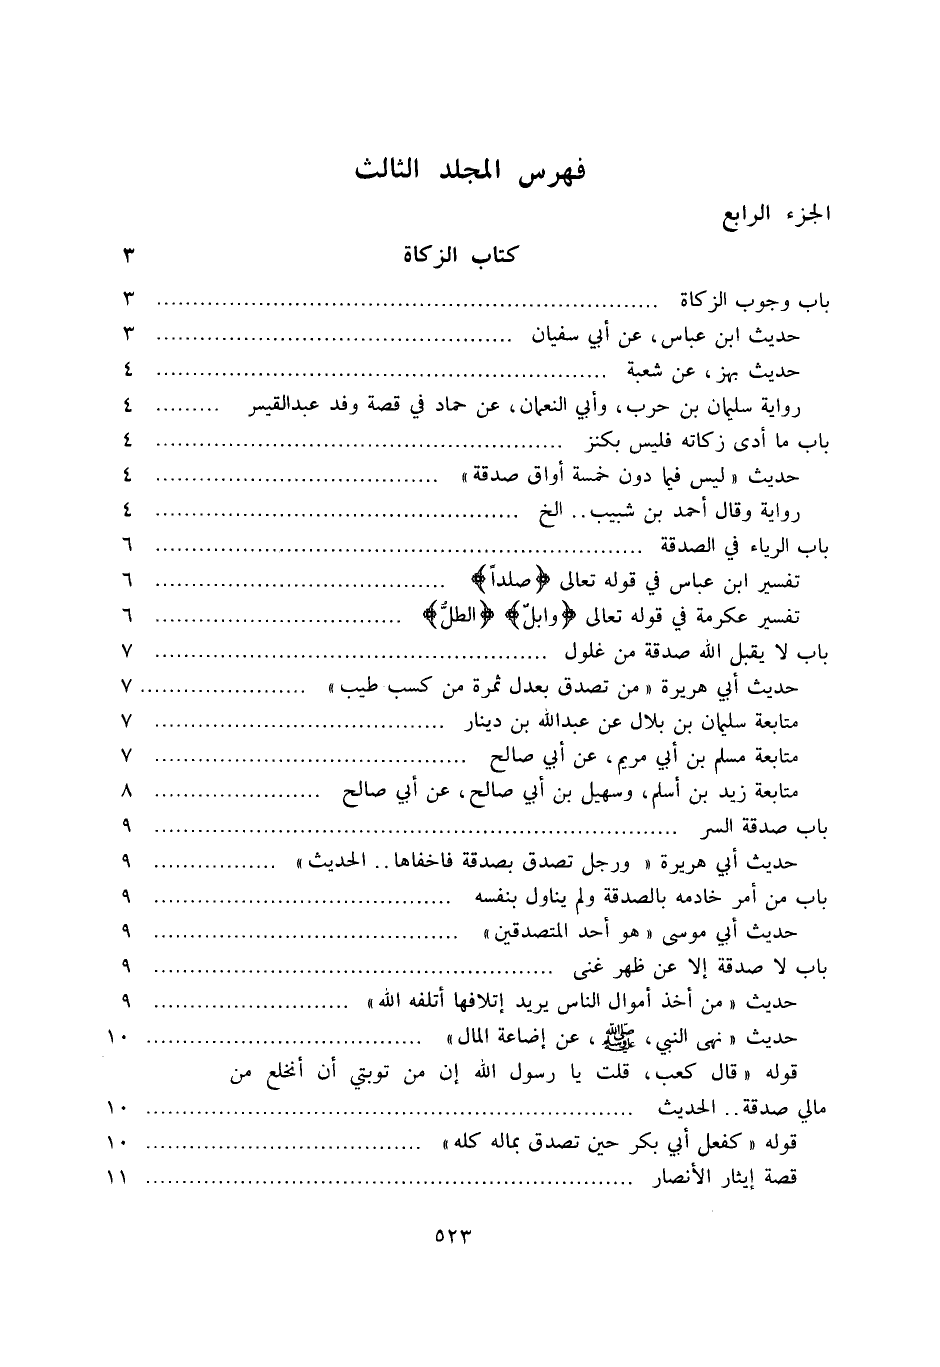 فهرس المجلد الثالث
الجزء الرابع
كتاب الزكاة ٣
باب وجوب الزكاة ........ ٣
حديث ابن عباس، عن أبي سفيان ........ ٣
حديث بهز، عن شعبة ........ ٤
رواية سليمان بن حرب، وأبي النعمان، عن حماد في قصة وفد عبدالقيسر ........ ٤
باب ما أدى زكاته فليس بكنز ........ ٤
حديث «ليس فيما دون خمسة أواق صدقة» ........ ٤
رواية وقال أحمد بن شبيب.. الخ ........ ٤
باب الرياء في الصدقة ........ ٦
تفسير ابن عباس في قوله تعالى ﴿صلداً﴾ ........ ٦
تفسير عكرمة في قوله تعالى ﴿وابلٌ﴾ ﴿الطلُّ﴾ ........ ٦
باب لا يقبل الله صدقة من غلول ........ ٧
حديث أبي هريرة «من تصدق بعدل ثمرة من كسب طيب» ........ ٧
متابعة سليمان بن بلال عن عبدالله بن دينار ........ ٧
متابعة مسلم بن أبي مريم، عن أبي صالح ........ ٧
متابعة زيد بن أسلم، وسهيل بن أبي صالح، عن أبي صالح ........ ٨
باب صدقة السر ........ ٩
حديث أبي هريرة « ورجل تصدق بصدقة فاخفاها.. الحديث» ........ ٩
باب من أمر خادمه بالصدقة ولم يناول بنفسه ........ ٩
حديث أبي موسى «هو أحد المتصدقين» ........ ٩
باب لا صدقة إلا عن ظهر غنى ........ ٩
حديث «من أخذ أموال الناس يريد إتلافها أتلفه الله» ........ ٩
حديث «نهى النبي، ﷺ، عن إضاعة المال» ........ ١٠
قوله «قال كعب، قلت يا رسول الله إن من توبتي أن أنخلع من
مالي صدقة.. الحديث ........ ١٠
قوله «كفعل أبي بكر حين تصدق بماله كله» ........ ١٠
قصة إيثار الأنصار ........ ١١
٥٢٣